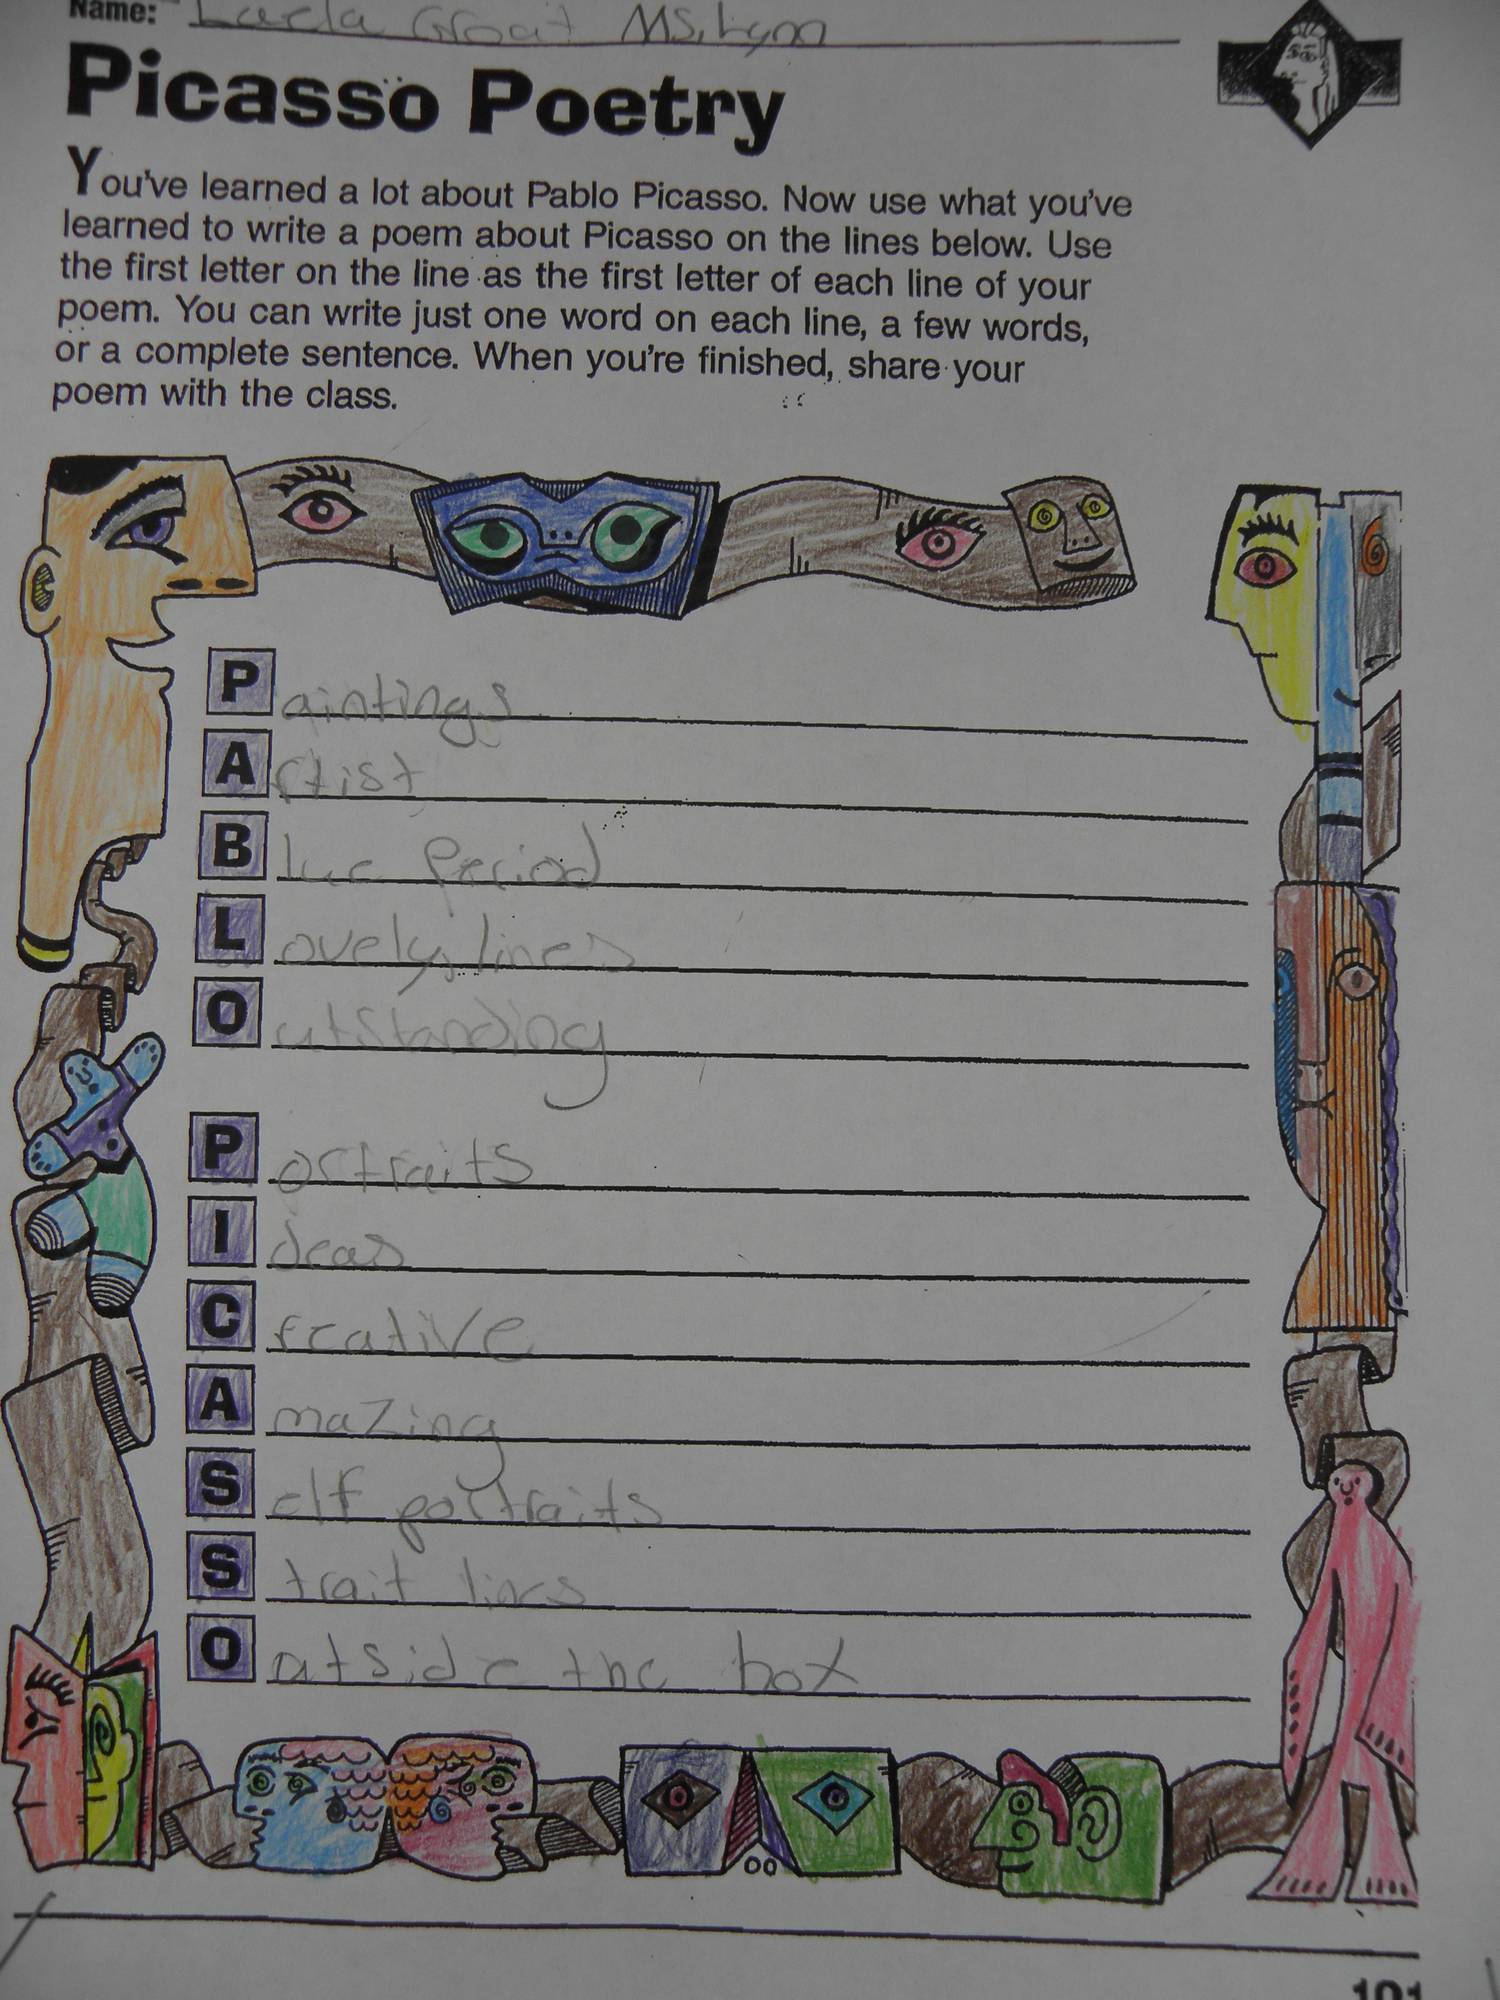 Name: Ms. Lynn
Picasso Poetry
You've learned a lot about Pablo Picasso. Now use what you've
learned to write a poem about Picasso on the lines below. Use
the first letter on the line as the first letter of each line of your
poem. You can write just one word on each line, a few words,
or a complete sentence. When you're finished, share your
poem with the class.
Paintings
Artist
Blue Period
Lovely, lines
Outstanding
Portraits
Ideas
Creative
Amazing
Self portraits
Strait lines
Outside the box
101